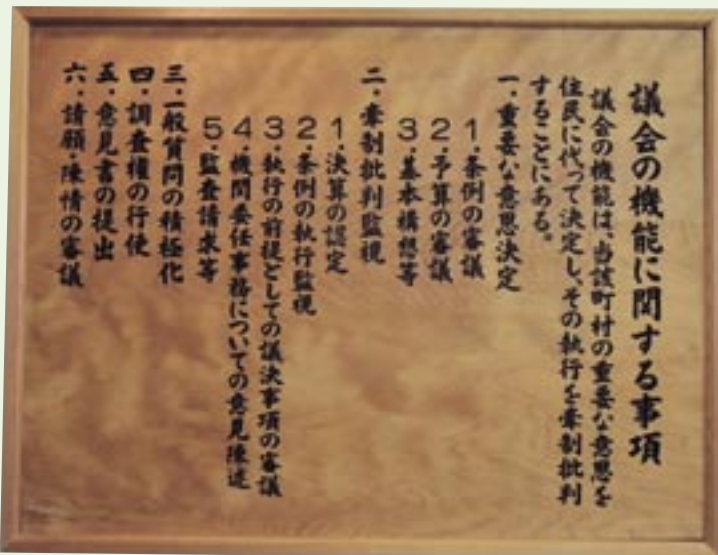 議会の機能に関する事項
議会の機能は、当該町村の重要な意思を
住民に代って決定し、その執行を牽制批判
することにある。
一.重要な意思決定
1.条例の審議
2.予算の審議
3.基本構想等
二.牽制批判監視
1.決算の認定
2.条例の執行監視
3.執行の前提としての議決事項の審議
4.機関委任事務についての意見陳述
5.監査請求等
三.一般質問の積極化
四.調査権の行使
五.意見書の提出
六.請願・陳情の審議